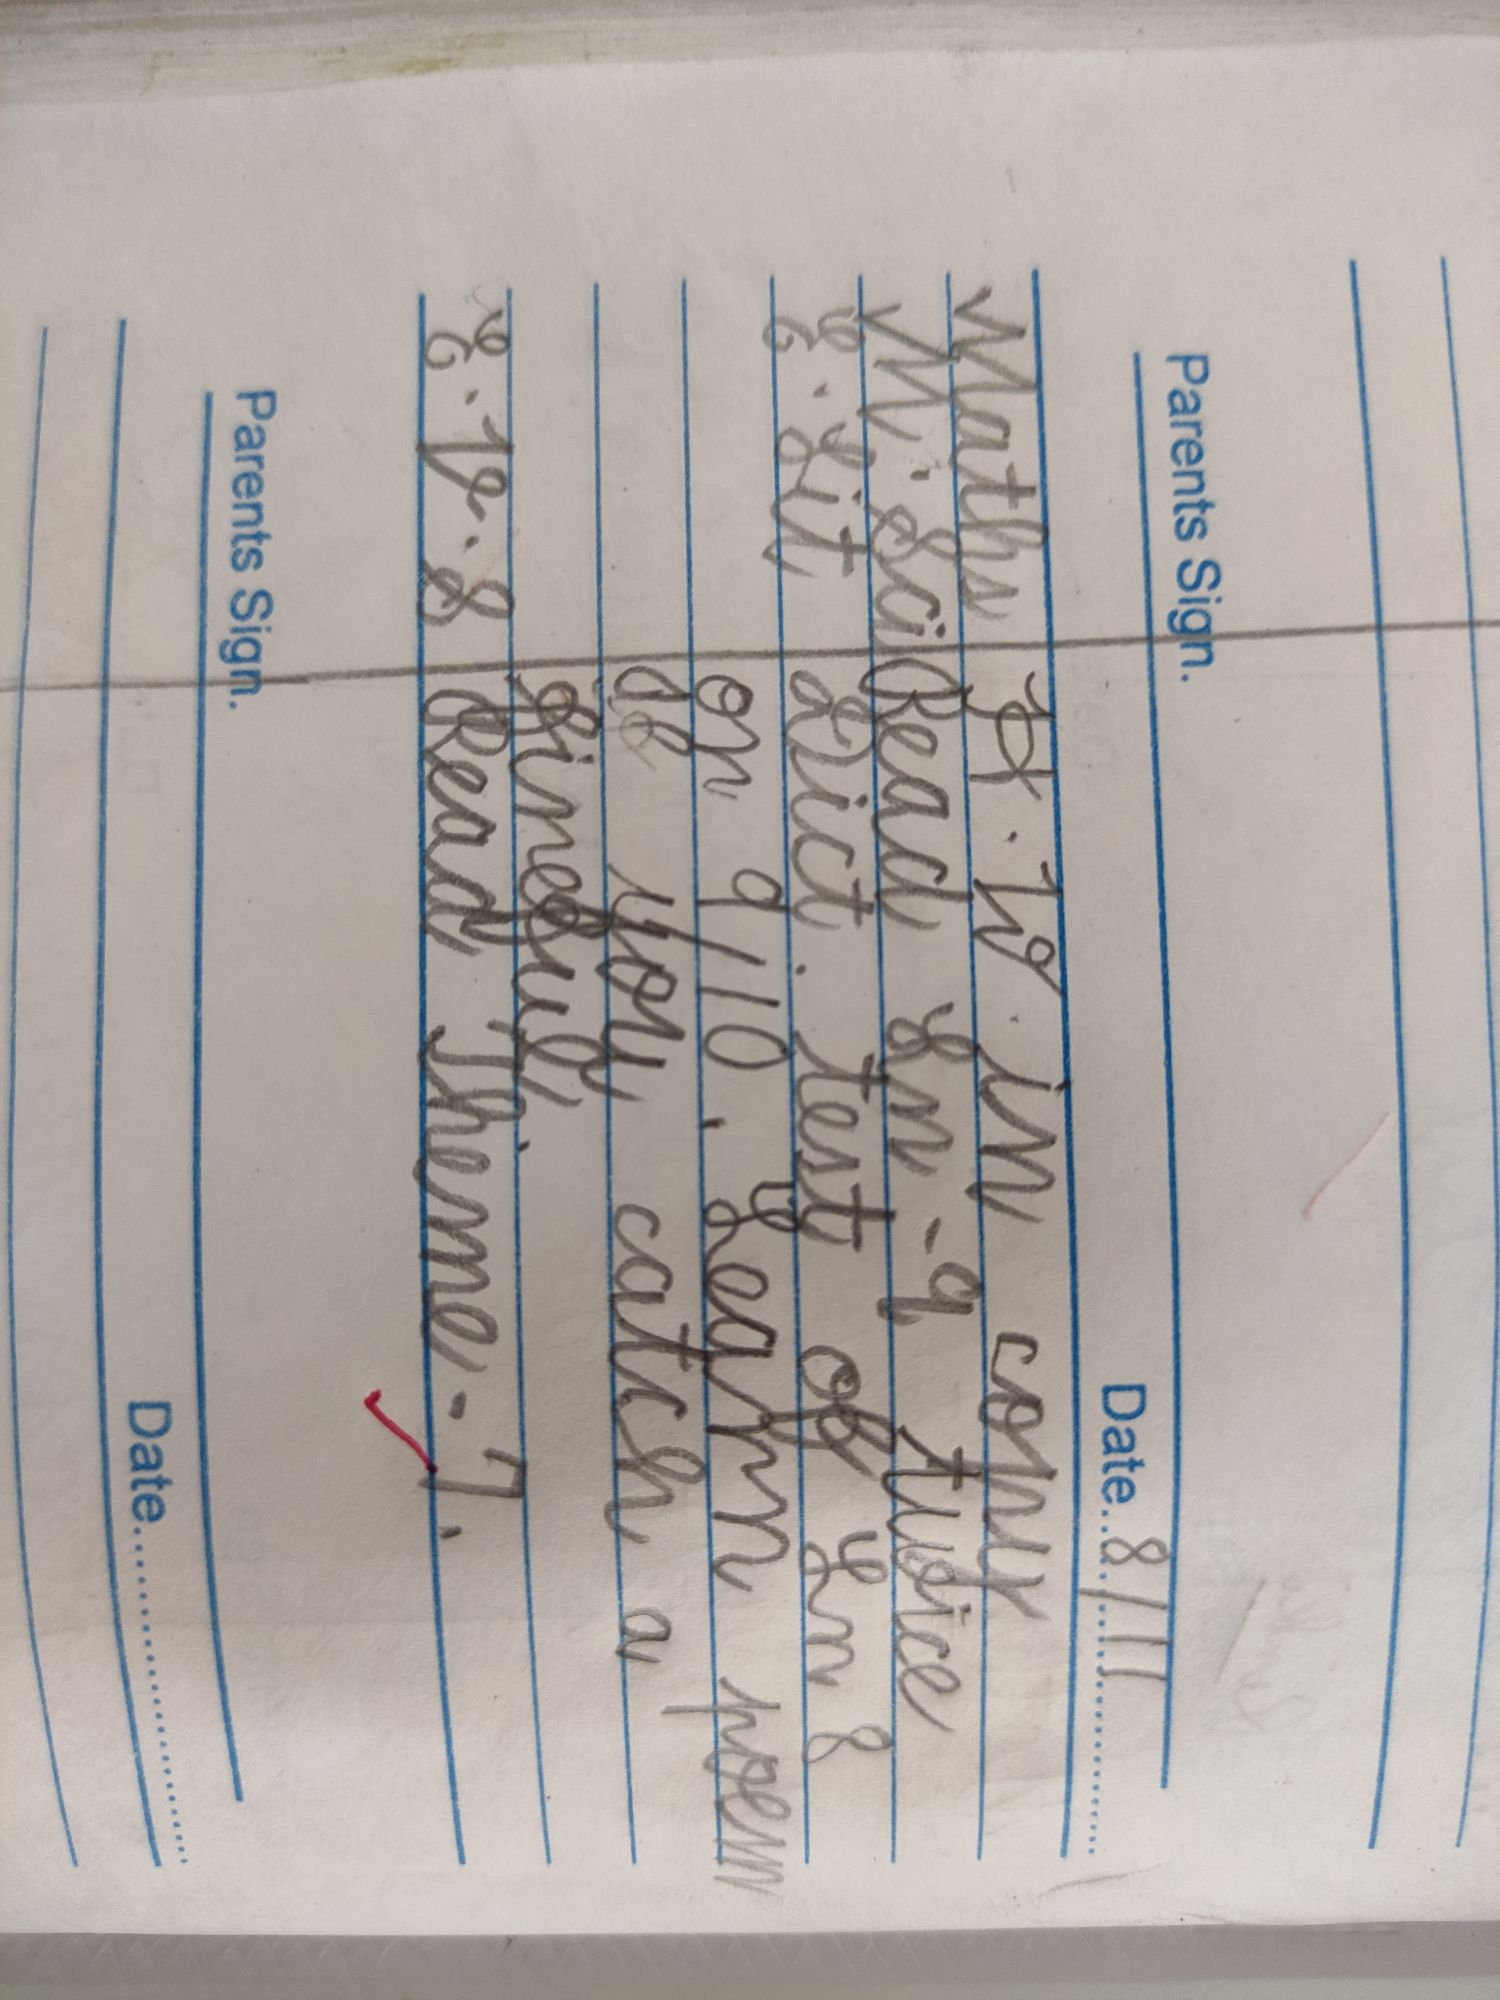 Parents Sign.
Date 8/11
Maths H.W. in copy
M.Sci Read Ln-9 twice
E.Lit Dict. test of Ln 8
on 9/10. Learn poem
If You catch a
Firefly.
E.V.S Read Theme-7.
Parents Sign.
Date